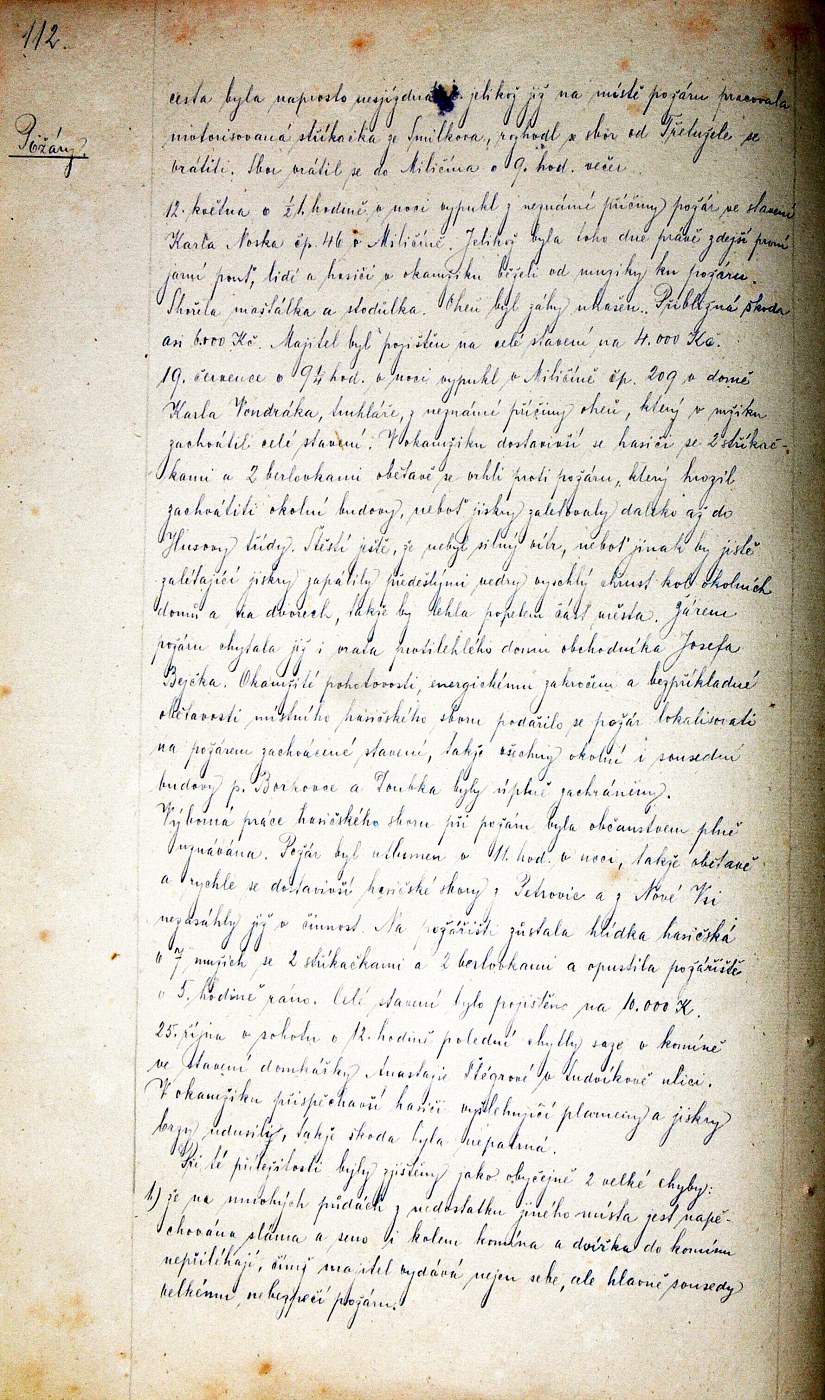 112.
Požáry.
cesta byla naprosto nesjízdná. jelikož již na místě požáru pracovala
motorisovaná stříkačka ze Smilkova, rozhodl se sbor od Třetužele se
vrátiti. Sbor vrátil se do Miličína o 9. hod. večer.
12. května o ½1. hodině v noci vypukl z neznámé příčiny požár ve stavení
Karla Noska čp. 46 v Miličíně. Jelikož byla toho dne právě zdejší první
jarní pouť, lidé a hasiči v okamžiku běželi od muziky ku požáru.
Shořela maštálka a stodůlka. Oheň byl záhy uhašen. Přibližná škoda
asi 6.000 Kč. Majitel byl pojištěn na celé stavení na 4.000 Kč.
19. července o 9¼ hod. v noci vypukl v Miličíně čp. 209 v domě
Karla Vondráka, truhláře, z neznámé příčiny oheň, který v mžiku
zachvátil celé stavení. V okamžiku dostavivší se hasiči se 2 stříkač-
kami a 2 berlovkami obětavě se vrhli proti požáru, který hrozil
zachvátiti okolní budovy, neboť jiskry zaletovaly daleko až do
Husovy třídy. Štěstí ještě, že nebyl silný vítr, neboť jinak by jistě
zalétající jiskry zapálily předešlými vedry vyschlý chrust kol okolních
domů a na dvorech, takže by lehla popelem část města. Žárem
požáru chytala již i vrata protilehlého domu obchodníka Josefa
Bejčka. Okamžité pohotovosti, energickému zakročení a bezpříkladné
obětavosti místního hasičského sboru podařilo se požár lokalisovati
na požárem zachvácené stavení, takže všechny okolní i sousední
budovy p. Borkovce a Doubka byly úplně zachráněny.
Výborná práce hasičského sboru při požáru byla občanstvem plně
uznávána. Požár byl utlumen v 11. hod. v noci, takže obětavě
a rychle se dostavivší hasičské sbory z Petrovic a z Nové Vsi
nezasáhly již v činnost. Na požářišti zůstala hlídka hasičská
o 7 mužích se 2 stříkačkami a 2 berlovkami a opustila požářiště
o 5. hodině ráno. Celé stavení bylo pojištěno na 10.000 K.
25. října v sobotu o 12. hodině polední chytly saze v komíně
ve stavení domkářky Anastasie Štégrové v Ludvíkově ulici.
V okamžiku přispěchavší hasiči vyšlehující plameny a jiskry
brzy udusily, takže škoda byla nepatrná.
Při té příležitosti byly zjištěny jako obyčejně 2 velké chyby:
1.) že na mnohých půdách z nedostatku jiného místa jest napě-
chována sláma a seno i kolem komína a dvířka do komínu
nepřiléhají, čímž majitel vydává nejen sebe, ale hlavně sousedy
velkému nebezpečí požáru.